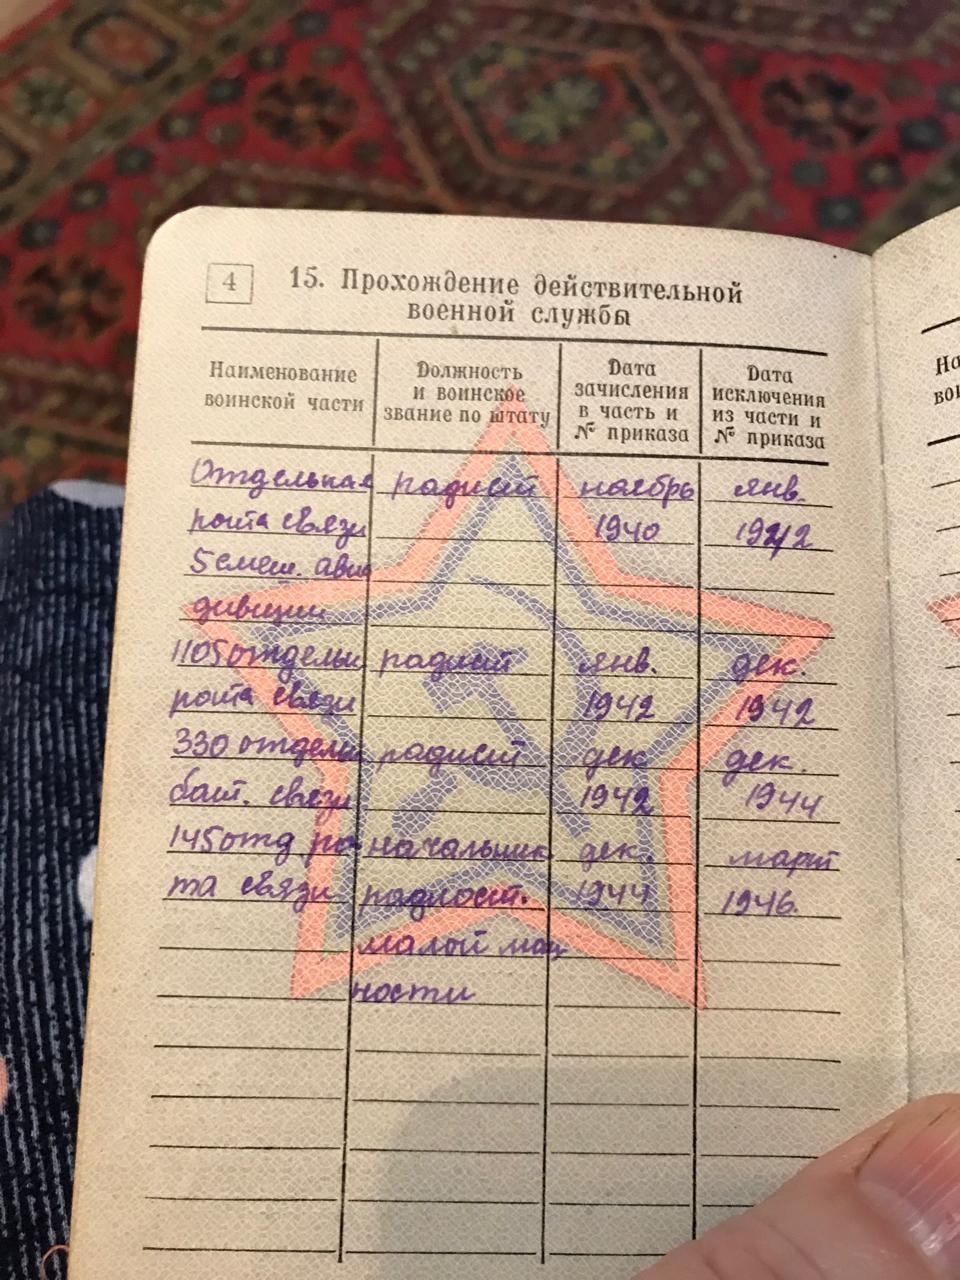 4
15. Прохождение действительной
военной службы
Наименование воинской части
Должность и воинское звание по штату
Дата зачисления в часть и № приказа
Дата исключения из части и № приказа
Отдельная радист ноябрь янв.
рота связи 1940 1942
5 смеш. авиа
дивизии
1105 отдельн радист янв. дек.
рота связи 1942 1942
330 отдельн радист дек дек.
бат. связи 1942 1944
145 отд ро- начальник дек. март
та связи радиост. 1944 1946.
малой мощ
ности
На
вои